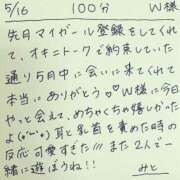 5/16 100分 W様
先月マイガール登録をしてくれ
て、オキニトークで約束していた
通り5月中に会いに来てくれて
本当にありがとう♡W様に今日
やっと会えて、めちゃくちゃ嬉しかった
よ(*´`*)耳と乳首を責めた時の
反応可愛すぎた!!!また2人で一
緒に遊ぼうね!!
みと